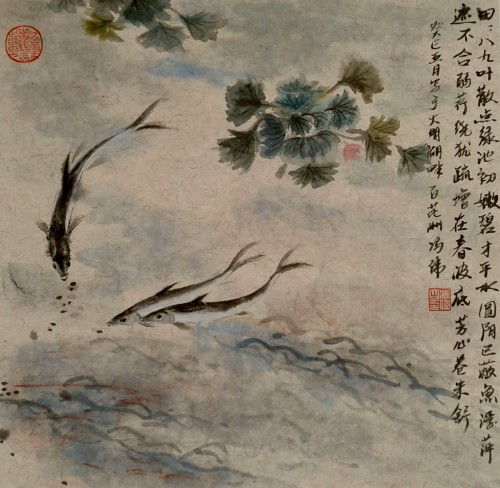 田〻八九叶散点绿池初嫩碧才平水圆阴已蔽鱼浮萍
遮不合弱荇绕犹疏增在春波底芳心卷未舒
癸巳五月写于大明湖畔百花洲冯